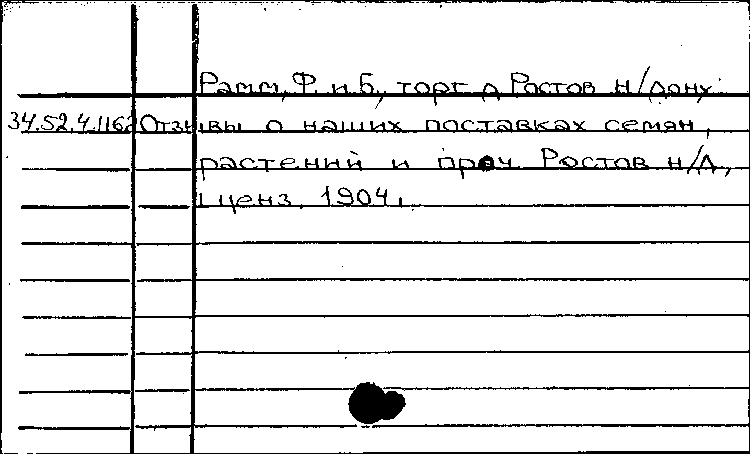 Рамм, Ф. и Б., торг. д. Ростов н/Дону.
34.52.4.1162 Отзывы о наших поставках семян,
растений и проч. Ростов н/Д,
ценз. 1904.